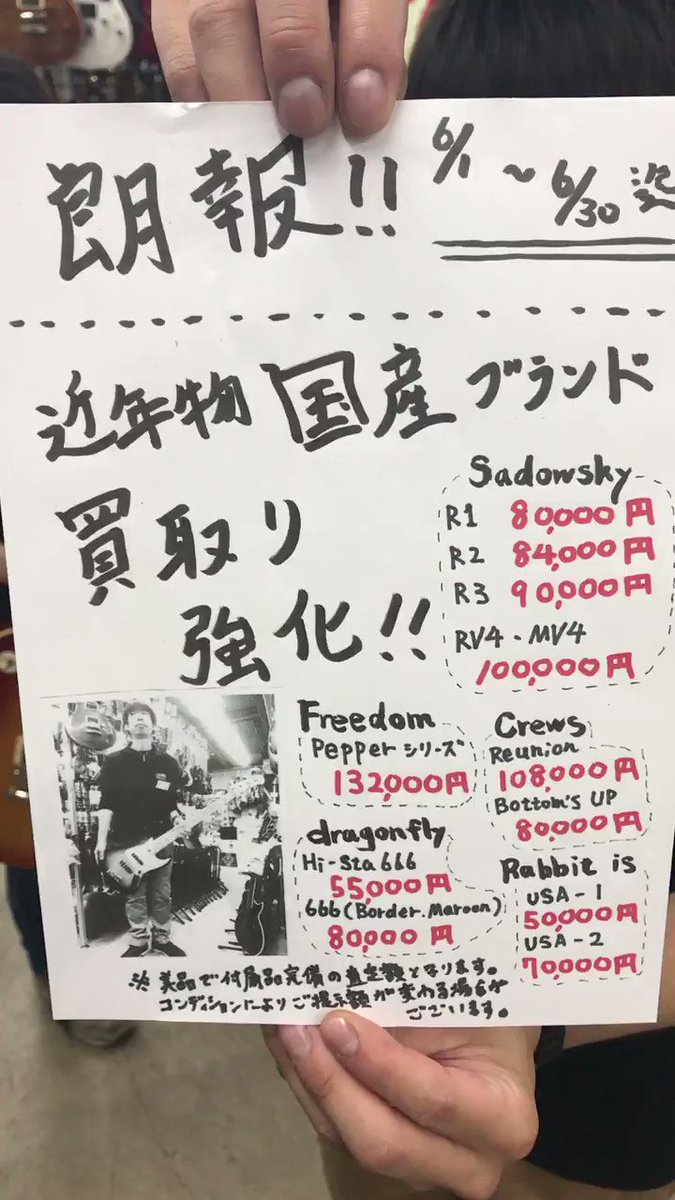 朗報!!
6/1 ~ 6/30 迄
近年物 国産 ブランド
買取り
強化!!
Sadowsky
R1 80,000円
R2 84,000円
R3 90,000円
RV4・MV4
100,000円
Freedom
Pepper シリーズ
132,000円
Crews
Reunion
108,000円
Bottom's UP
80,000円
dragonfly
Hi-Sta 666
55,000円
666(Border.Maroon)
80,000円
Rabbit is
USA-1
50,000円
USA-2
70,000円
※ 美品で付属品完備の査定額となります。
コンディションによりご提示額が変わる場合が
ございます。